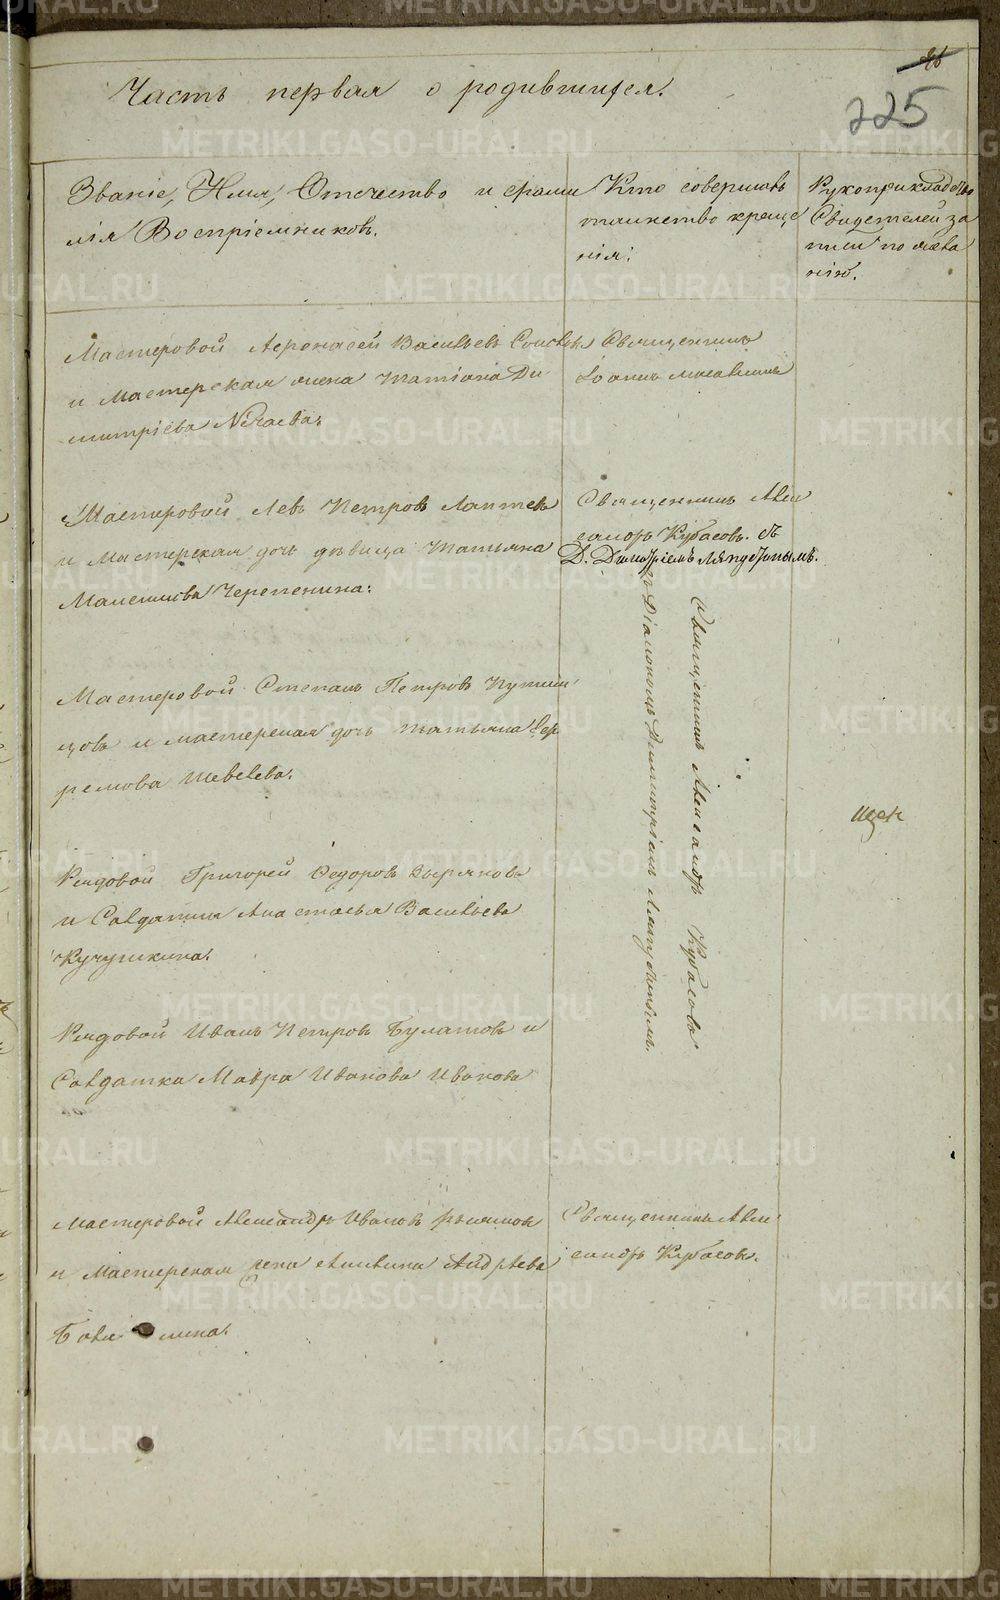 Часть первая о родившихся.
225
Званіе, Имя, Отечество и фами
лія Воспріемниковъ.
Кто совершалъ
таинство креще
нія.
Рукоприкладство
Свидетелей за
писи по жела
нію.
Мастеровой Афонасей Васильевъ
и Мастерская жена Татіана Ди
митріева Нечаева.
Священникъ
Іоаннъ
Мастеровой Левъ Петровъ Лаптевъ
и Мастерская дочь девица Татьяна
Черепенина.
Священникъ Алек
сандръ Кубасовъ. съ
Д. Димитріемъ Ляпустинымъ.
Мастеровой Степанъ Петровъ Путин
цовъ и мастерская дочь Татьяна Еф
ремова Шевелева.
Священникъ Александръ Кубасовъ
съ Діакономъ Димитріемъ Ляпустинымъ.
Рядовой Григорей Федоровъ Зыряновъ
и Салдатка Анастасья Васильева
Кучушкина.
Рядовой Иванъ Петровъ Булатовъ и
Салдатка Мавра Иванова Иванова
Мастеровой Александръ Ивановъ
и Мастерская жена Акилина Андреева
Священникъ Алек
сандръ Кубасовъ.
METRIKI.GASO-URAL.RU